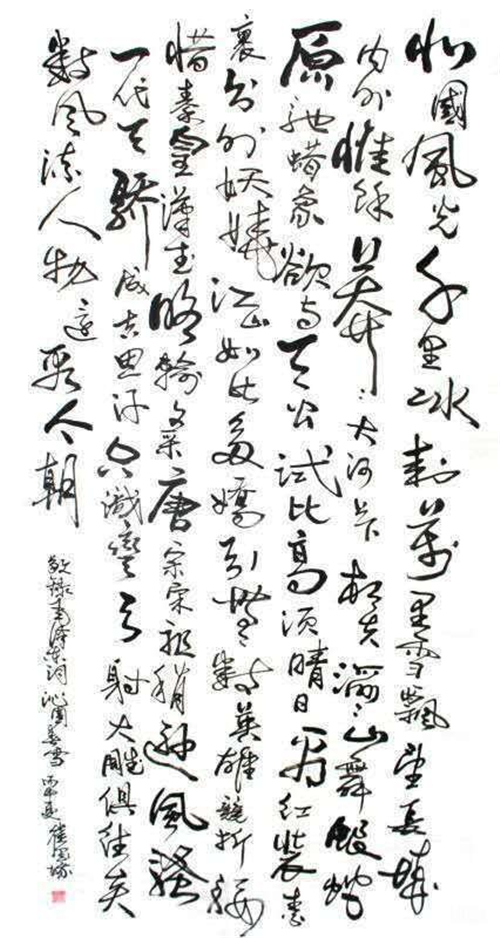 北國風光千里冰封萬里雪飄望長城
內外惟餘莽莽大河上下頓失滔滔山舞銀蛇
原馳蜡象欲與天公試比高須晴日看紅裝素
裹分外妖嬈江山如此多嬌引無數英雄競折腰
惜秦皇漢武略輸文采唐宗宋祖稍遜風騷
一代天驕成吉思汗只識彎弓射大雕俱往矣
數風流人物還看今朝
敬錄毛澤東詞沁園春雪丙申夏